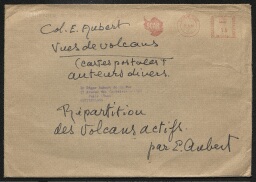 Col. E. Aubert
Vues de volcans
(cartes postales)
auteurs divers.
Répartition
des volcans actifs.
par E. Aubert